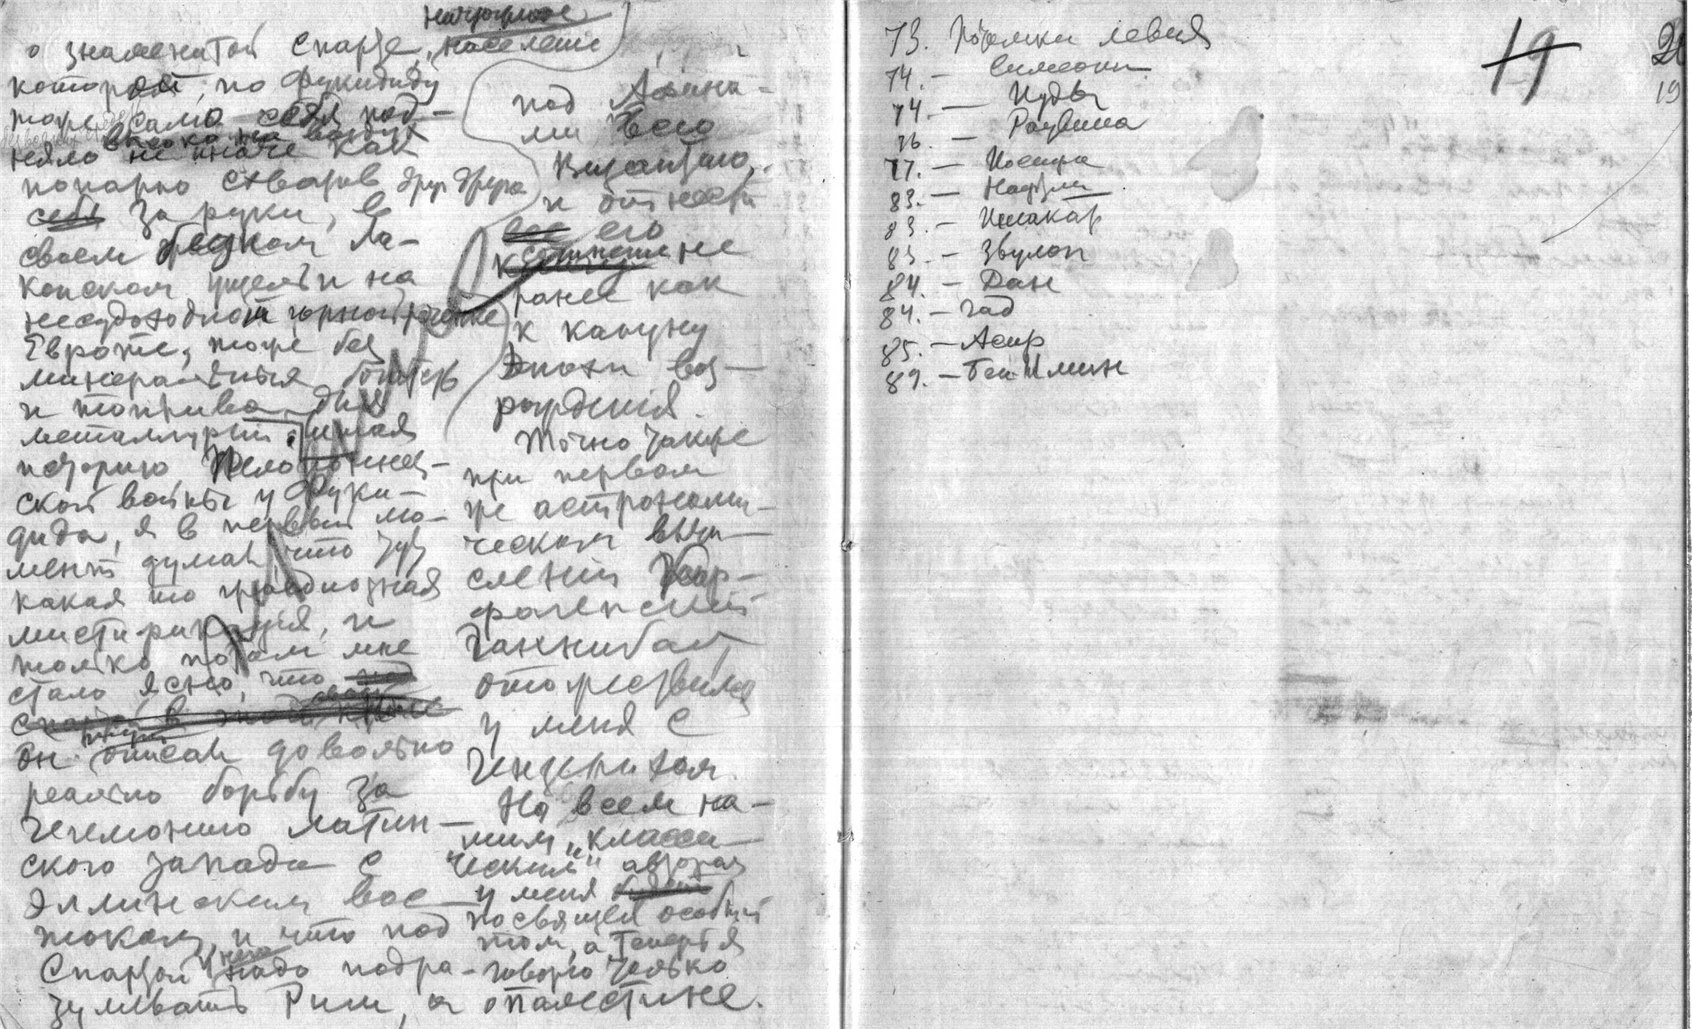 о знаменитой Спарте, население
которой, по Фукидиду
тоже само себя под-
няло высоко на воздух
не иначе как
попарно схватив друг друга
за руки, в
своем бедном Ла-
конском ущельи на
неудоходной горной речке
Европе, тоже без
минеральных богатств
и топлива для
металлургии. Читая
историю Пелопоннес-
ской войны у Фуки-
дида, я в первый мо-
мент думал что тут
какая то грандиозная
мистификация, и
только потом мне
стало ясно, что
он описал довольно
реально борьбу за
гегемонию латин-
ского запада с
эллинским вос-
током, и что под
Спартой у него надо подра-
зумевать Рим, а
под Афина-
ми Ѳего
Византию,
и отнести
все его
сочинение не
ранее как
к кануну
Эпохи воз-
рождения.
Точно также
при первом
же астрономи-
ческом вычи-
слении Карфагенский
Ганнибал
отожествился
у меня с
Гензерихом
Но всем на-
шим „класси-
ческим" авторам
у меня
посвящен особый
том, а теперь я
говорю только
о Палестине.
73. Потомки Левия
74. — Симеона
74. — Иуды
76. — Рувима
77. — Иосифа
83. — Нафтали
83. — Иссакар
83. — Звулон
84. — Дан
84. — Гад
85. — Асир
89. — Бен-Имин
19
19